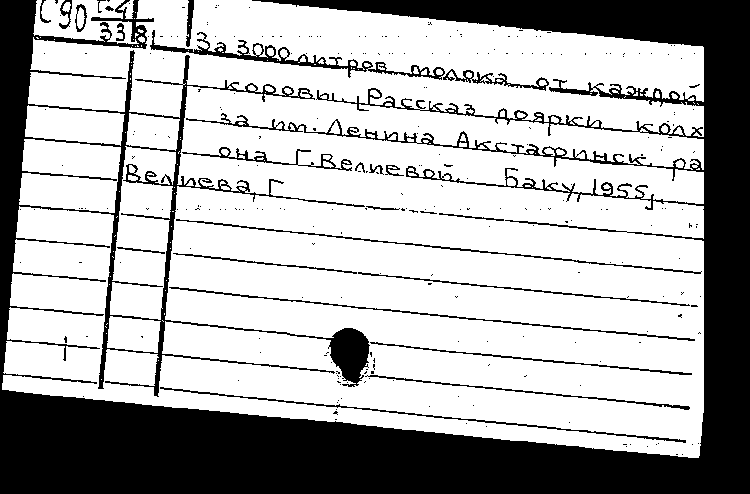 С90 Г-4
338
За 3000 литров молока от каждой
коровы. [Рассказ доярки колх
за им. Ленина Акстафинск. ра
она Г. Велиевой. Баку, 1955].
Велиева, Г